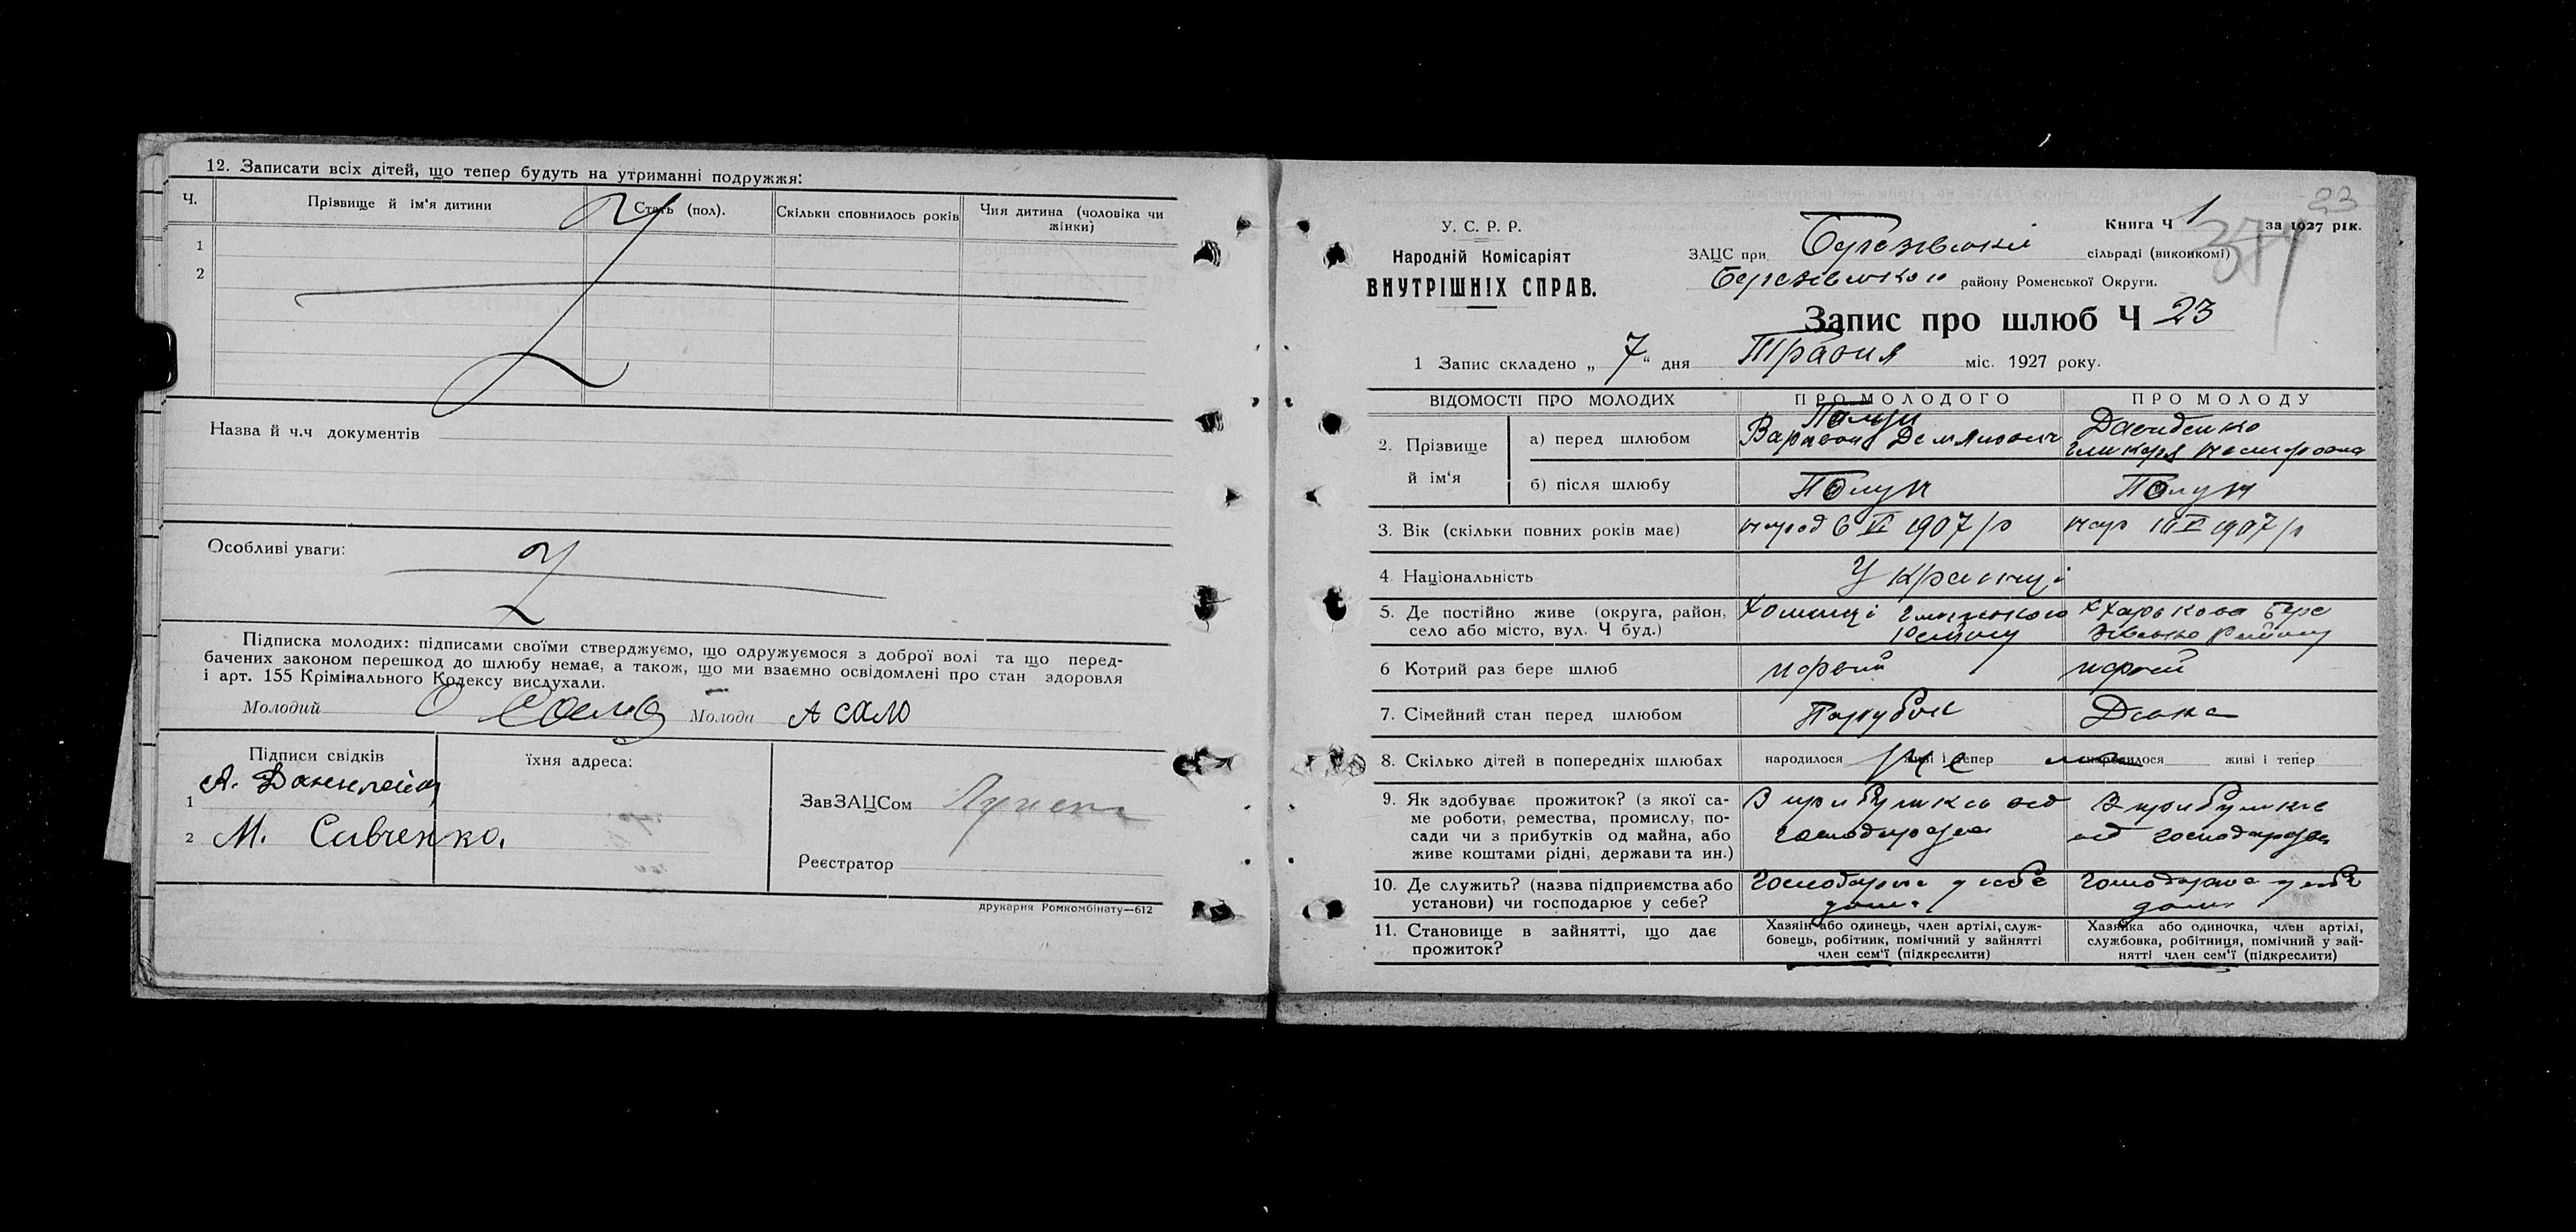 12. Записати всіх дітей, що тепер будуть на утриманні подружжя:
Ч. Прізвище й ім'я дитини Стать (пол). Скільки сповнилось років Чия дитина (чоловіка чи жінки)
1
2
Назва й ч.ч документів
Особливі уваги:
Підписка молодих: підписами своїми стверджуємо, що одружуємося з доброї волі та що перед-
бачених законом перешкод до шлюбу немає, а також, що ми взаємно освідомлені про стан здоровля
і арт. 155 Крімінального Кодексу вислухали.
Молодий Молода А сало
Підписи свідків їхня адреса:
1 А.
2 М. Савченко.
ЗавЗАЦСом
Реєстратор
друкарня Ромкомбінату—612
23
374
У. С. Р. Р.
Народній Комісаріят
ВНУТРІШНІХ СПРАВ.
Книга Ч 1 за 1927 рік.
ЗАЦС при Березівській сільраді (виконкомі)
Березівського району Роменської Округи.
Запис про шлюб Ч 23
1 Запис складено „ 7 “ дня Травня міс. 1927 року.
ВІДОМОСТІ ПРО МОЛОДИХ ПРО МОЛОДОГО ПРО МОЛОДУ
2. Прізвище й ім'я
а) перед шлюбом Демянович Давиденко
б) після шлюбу
3. Вік (скільки повних років має) народ 6 VI 1907 р 1907 р
4. Національність Українці
5. Де постійно живе (округа, район, Хоминці Глинського
село або місто, вул. Ч буд.) Району Району
6 Котрий раз бере шлюб первий первий
7. Сімейний стан перед шлюбом Парубок
8. Скілько дітей в попередніх шлюбах народилося живі і тепер народилося живі і тепер
не має
9. Як здобуває прожиток? (з якої са- З прибутків од З прибутків
ме роботи, ремества, промислу, по- господарства од господарства
сади чи з прибутків од майна, або
живе коштами рідні, держави та ин.)
10. Де служить? (назва підприємства або Господарює у себе Господарює у себе
установи) чи господарює у себе? дома дома
11. Становище в зайнятті, що дає Хазяін або одинець, член артілі, служ- Хазяйка або одиночка, член артілі,
прожиток? бовець, робітник, помічний у зайнятті службовка, робітниця, помічний у зай-
член сем'ї (підкреслити) нятті член сем'ї (підкреслити)